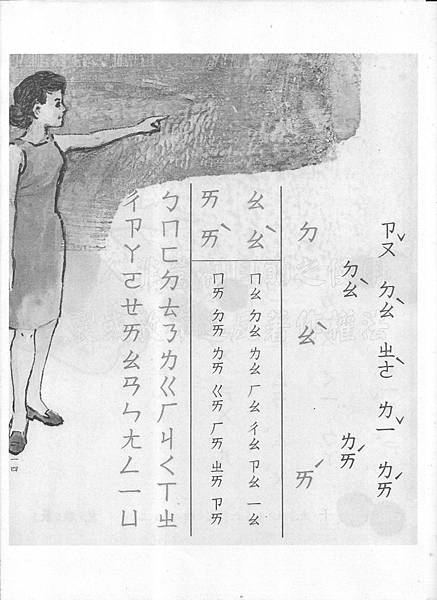 ㄗㄡˇ ㄉㄠˋ ㄓㄜˋ ㄌㄧˇ ㄌㄞˊ
ㄉㄠˋ ㄌㄞˊ
ㄉ ㄠˋ ㄞˊ
ㄠ ㄠˋ ㄇㄠ ㄉㄠ ㄌㄠ ㄏㄠ ㄔㄠ ㄗㄠ ㄧㄠ
ㄞ ㄞˋ ㄇㄞ ㄉㄞ ㄌㄞ ㄍㄞ ㄏㄞ ㄓㄞ ㄗㄞ
ㄅ ㄇ ㄈ ㄉ ㄊ ㄋ ㄌ ㄍ ㄏ ㄐ ㄑ ㄒ ㄓ
ㄔ ㄗ ㄚ ㄜ ㄝ ㄞ ㄠ ㄢ ㄣ ㄤ ㄥ ㄧ ㄩ
一四